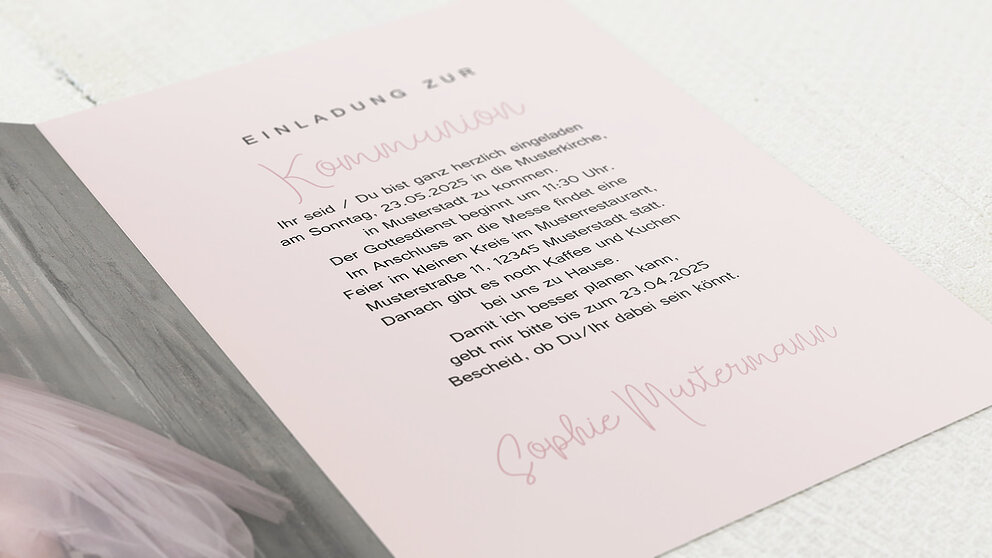 EINLADUNG ZUR
Kommunion
Ihr seid / Du bist ganz herzlich eingeladen
am Sonntag, 23.05.2025 in die Musterkirche,
in Musterstadt zu kommen.
Der Gottesdienst beginnt um 11:30 Uhr.
Im Anschluss an die Messe findet eine
Feier im kleinen Kreis im Musterrestaurant,
Musterstraße 11, 12345 Musterstadt statt.
Danach gibt es noch Kaffee und Kuchen
bei uns zu Hause.
Damit ich besser planen kann,
gebt mir bitte bis zum 23.04.2025
Bescheid, ob Du/Ihr dabei sein könnt.
Sophie Mustermann